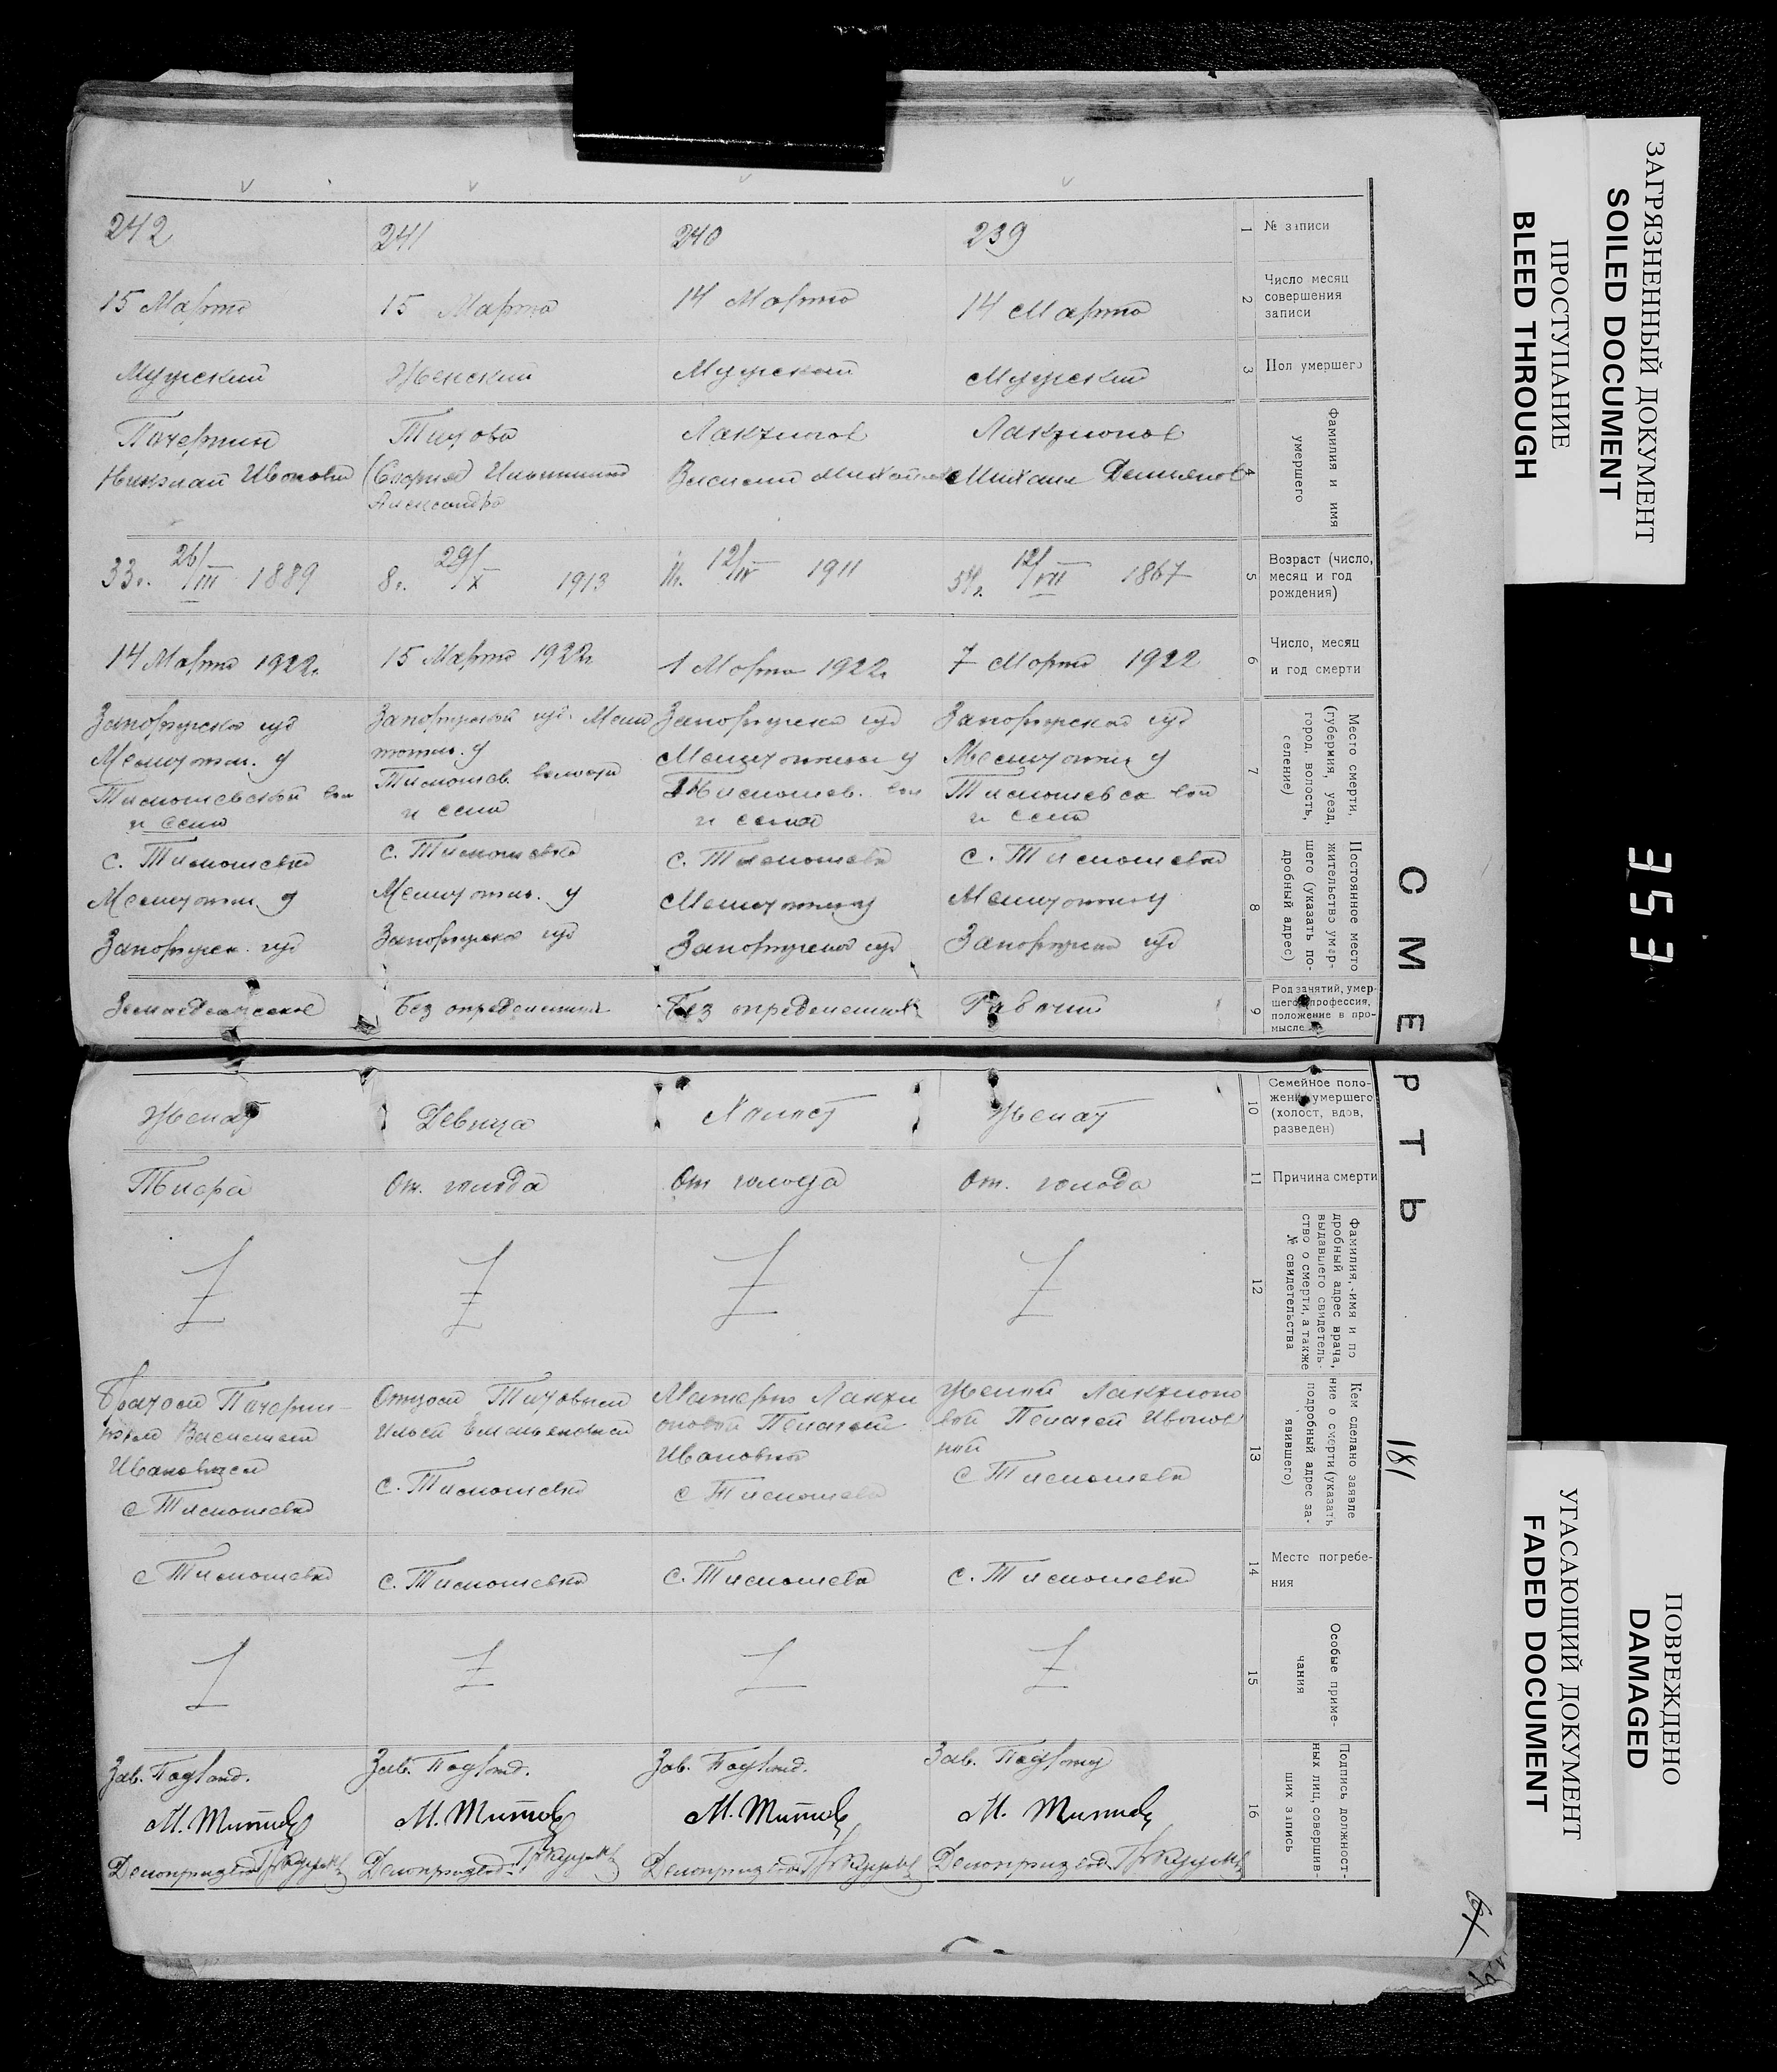 ЗАГРЯЗНЕННЫЙ ДОКУМЕНТ
SOILED DOCUMENT
ПРОСТУПАНИЕ
BLEED THROUGH
353
СМЕРТЬ
181
1 № записи
239
240
241
242
2 Число месяц
совершения
записи
14 Марта
14 Марта
15 Марта
15 Марта
3 Пол умершего
Мужский
Мужской
Женский
Мужский
4 Фамилия и имя
умершего
Лактионов
Михаил Демьянов
Лактионов
Василий Михайлов
Титова
Александра
Печерин
Николай Иванович
5 Возраст (число,
месяц и год
рождения)
54 г. 12/VII 1867
12/IV 1911
8 г. 29/X 1913
33 г. 26/III 1889
6 Число, месяц
и год смерти
7 Марта 1922
1 Марта 1922 г.
15 Марта 1922 г
14 Марта 1922 г.
7 Место смерти,
(губерния, уезд,
город, волость,
селение)
Запорожская губ
Мелитопол у
Тимошевск вол
и села
Запорожская губ
Мелитопол у
Тимошев. вол
и села
Запорожской губ. Мели
топол. у
Тимошев. волости
и села
Запорожская губ
Мелитопол. у
Тимошевской вол
и села
8 Постоянное место
жительство умер-
шего (указать по-
дробный адрес)
с. Тимошевка
Мелитопол у
Запорожская губ
с. Тимошевка
Мелитопол у
Запорожская губ
с. Тимошевка
Мелитопол. у
Запорожская губ
с. Тимошевка
Мелитопол. у
Запорожск. губ
9 Род занятий, умер-
шего профессия,
положение в про-
мысле
Рабочий
Без определенных
Без определенных
10 Семейное поло-
жение умершего
(холост, вдов,
разведен)
Женат
Холост
Девица
Женат
11 Причина смерти
От. голода
От голода
От. голода
Тифа
12 Фамилия, имя и по
дробный адрес врача,
выдавшего свидетель-
ство о смерти, а также
№ свидетельства
13 Кем сделано заявле
ние о смерти (указать
подробный адрес за-
явившего)
Женой Лактионо
вой Пелагей Иванов
ной
с Тимошевка
Матерью Лакти
оновой Пелагей
Ивановной
с Тимошевка
Отцом Титовым
Ильей Емельяновым
с. Тимошевка
Братом Печери-
ным Василием
Ивановичем
с Тимошевка
14 Место погребе-
ния
с. Тимошевка
с. Тимошевка
с. Тимошевка
с Тимошевка
15 Особые приме-
чания
16 Подпись должност-
ных лиц, совершив-
ших запись
Зав.
М. Титов
Делопроизвод.
Зав.
М. Титов
Делопроизвод.
Зав.
М. Титов
Делопроизвод.
Зав.
М. Титов
Делопроизвод.
ПОВРЕЖДЕНО
DAMAGED
УГАСАЮЩИЙ ДОКУМЕНТ
FADED DOCUMENT